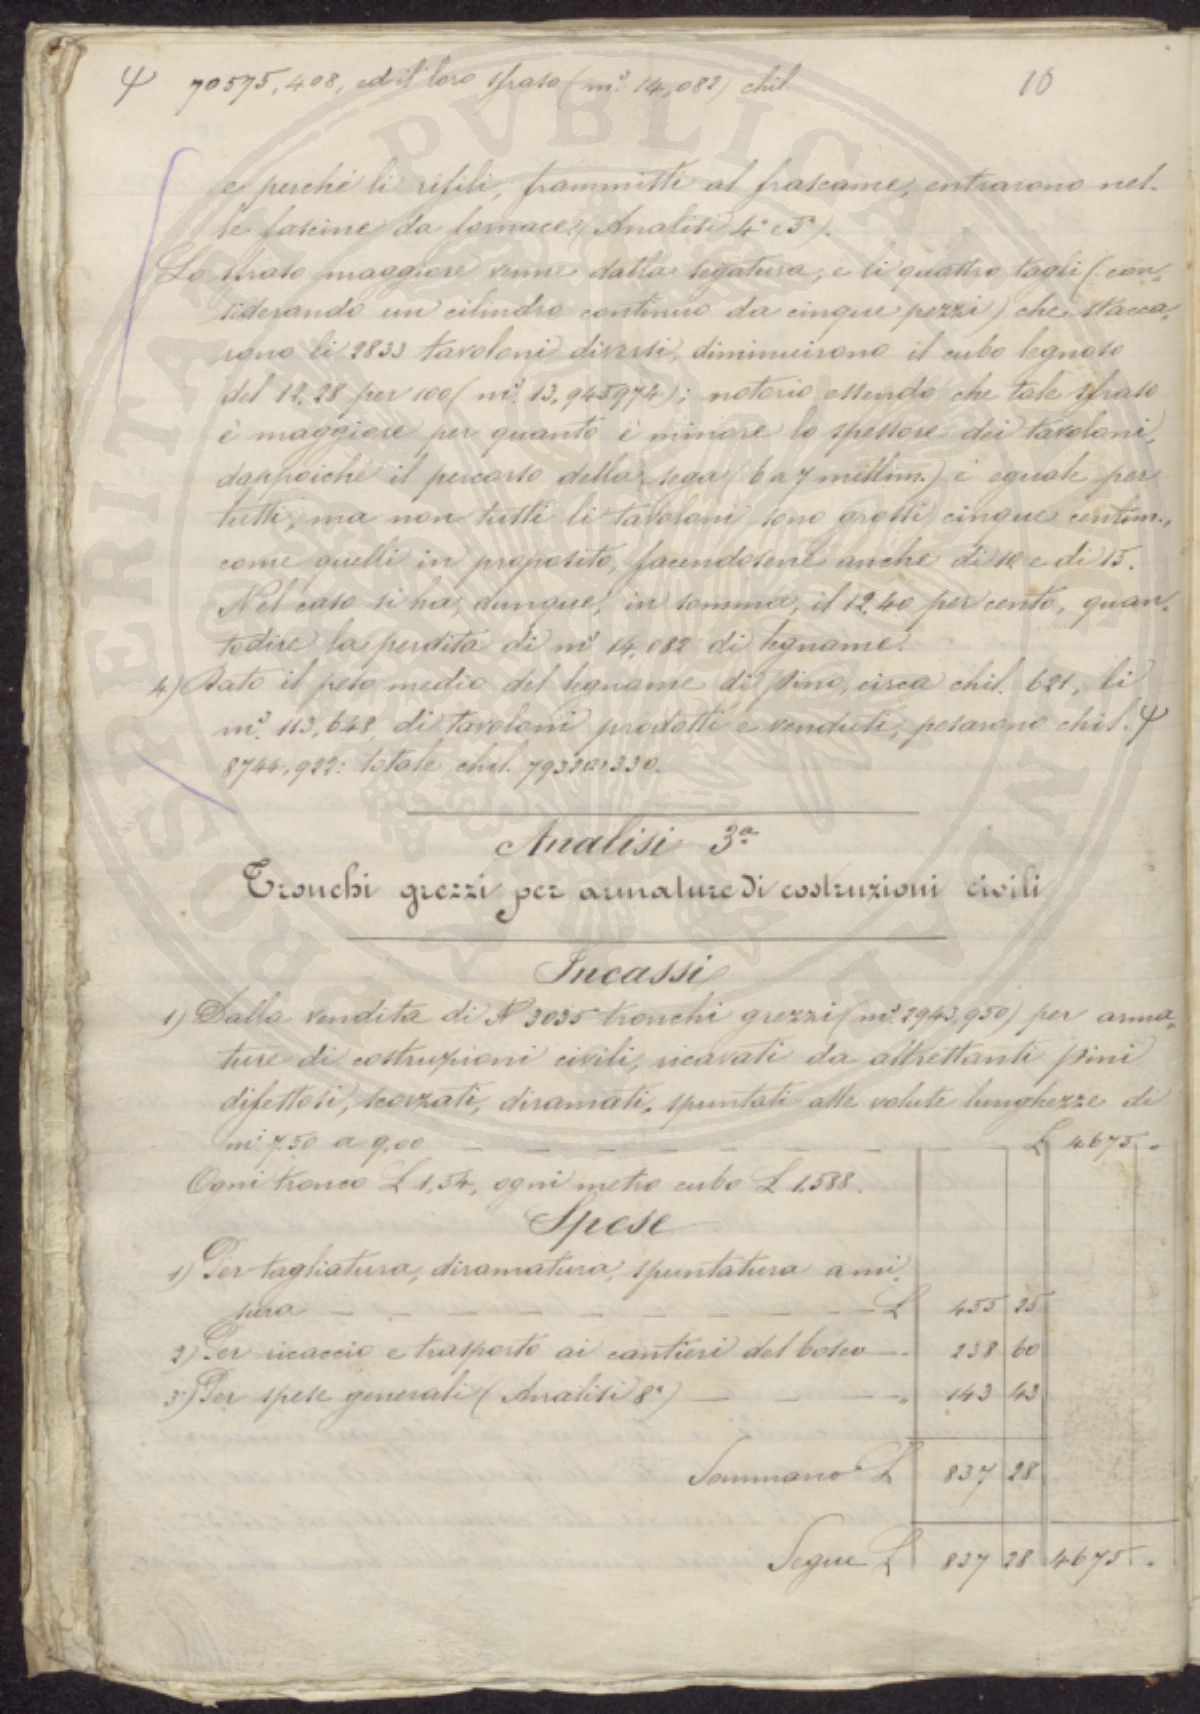 10
Ψ 70575,408, ed il loro sfraso (m.³ 14,082) chil.
e perchè li rifili, frammisti al frascame, entrarono nel-
le fascine da fornace (Analisi 4ª e 5ª).
Lo sfraso maggiore venne dalla segatura, e li quattro tagli (con-
siderando un cilindro continuo da cinque pezzi) che stacca-
rono li 2833 tavoloni diversi, diminuirono il cubo legnoso
del 12,28 per 100 (m.³ 13,945974); notorio essendo che tale sfraso
è maggiore per quanto è minore lo spessore dei tavoloni,
dappoichè il percorso della sega (6 a 7 millim.) è eguale per
tutti, ma non tutti li tavoloni sono grossi cinque centim.,
come quelli in proposito, facendosene anche di 10 e di 15.
Nel caso si ha, dunque, in somma, il 12,40 per cento, quan-
todire la perdita di m³ 14,082 di legname.
4) Dato il peso medio del legname di pino, circa chil. 621, li
m.³ 113,648 di tavoloni prodotti e venduti, pesarono chil. Ψ
8744,922: totale chil. 79320,330.
Analisi 3ª
Tronchi grezzi per armature di costruzioni civili
Incassi
1) Dalla vendita di Nº 3035 tronchi grezzi (m.³ 2943,950) per arma-
ture di costruzioni civili, ricavati da altrettanti pini
difettosi, scorzati, diramati, spuntati alle volute lunghezze di
m.ⁱ 7,50 a 9,00 — — — — — — — — — £ 4675 „
Ogni tronco £ 1,54, ogni metro cubo £ 1,588.
Spese
1) Per tagliatura, diramatura, spuntatura a mi-
sura — — — — — — — — £ 455 25
2) Per ricaccio e trasporto ai cantieri del bosco — „ 238 60
3) Per spese generali (Analisi 8ª) — — — „ 143 43
Sommano £ 837 28
Segue £ 837 28 4675 „